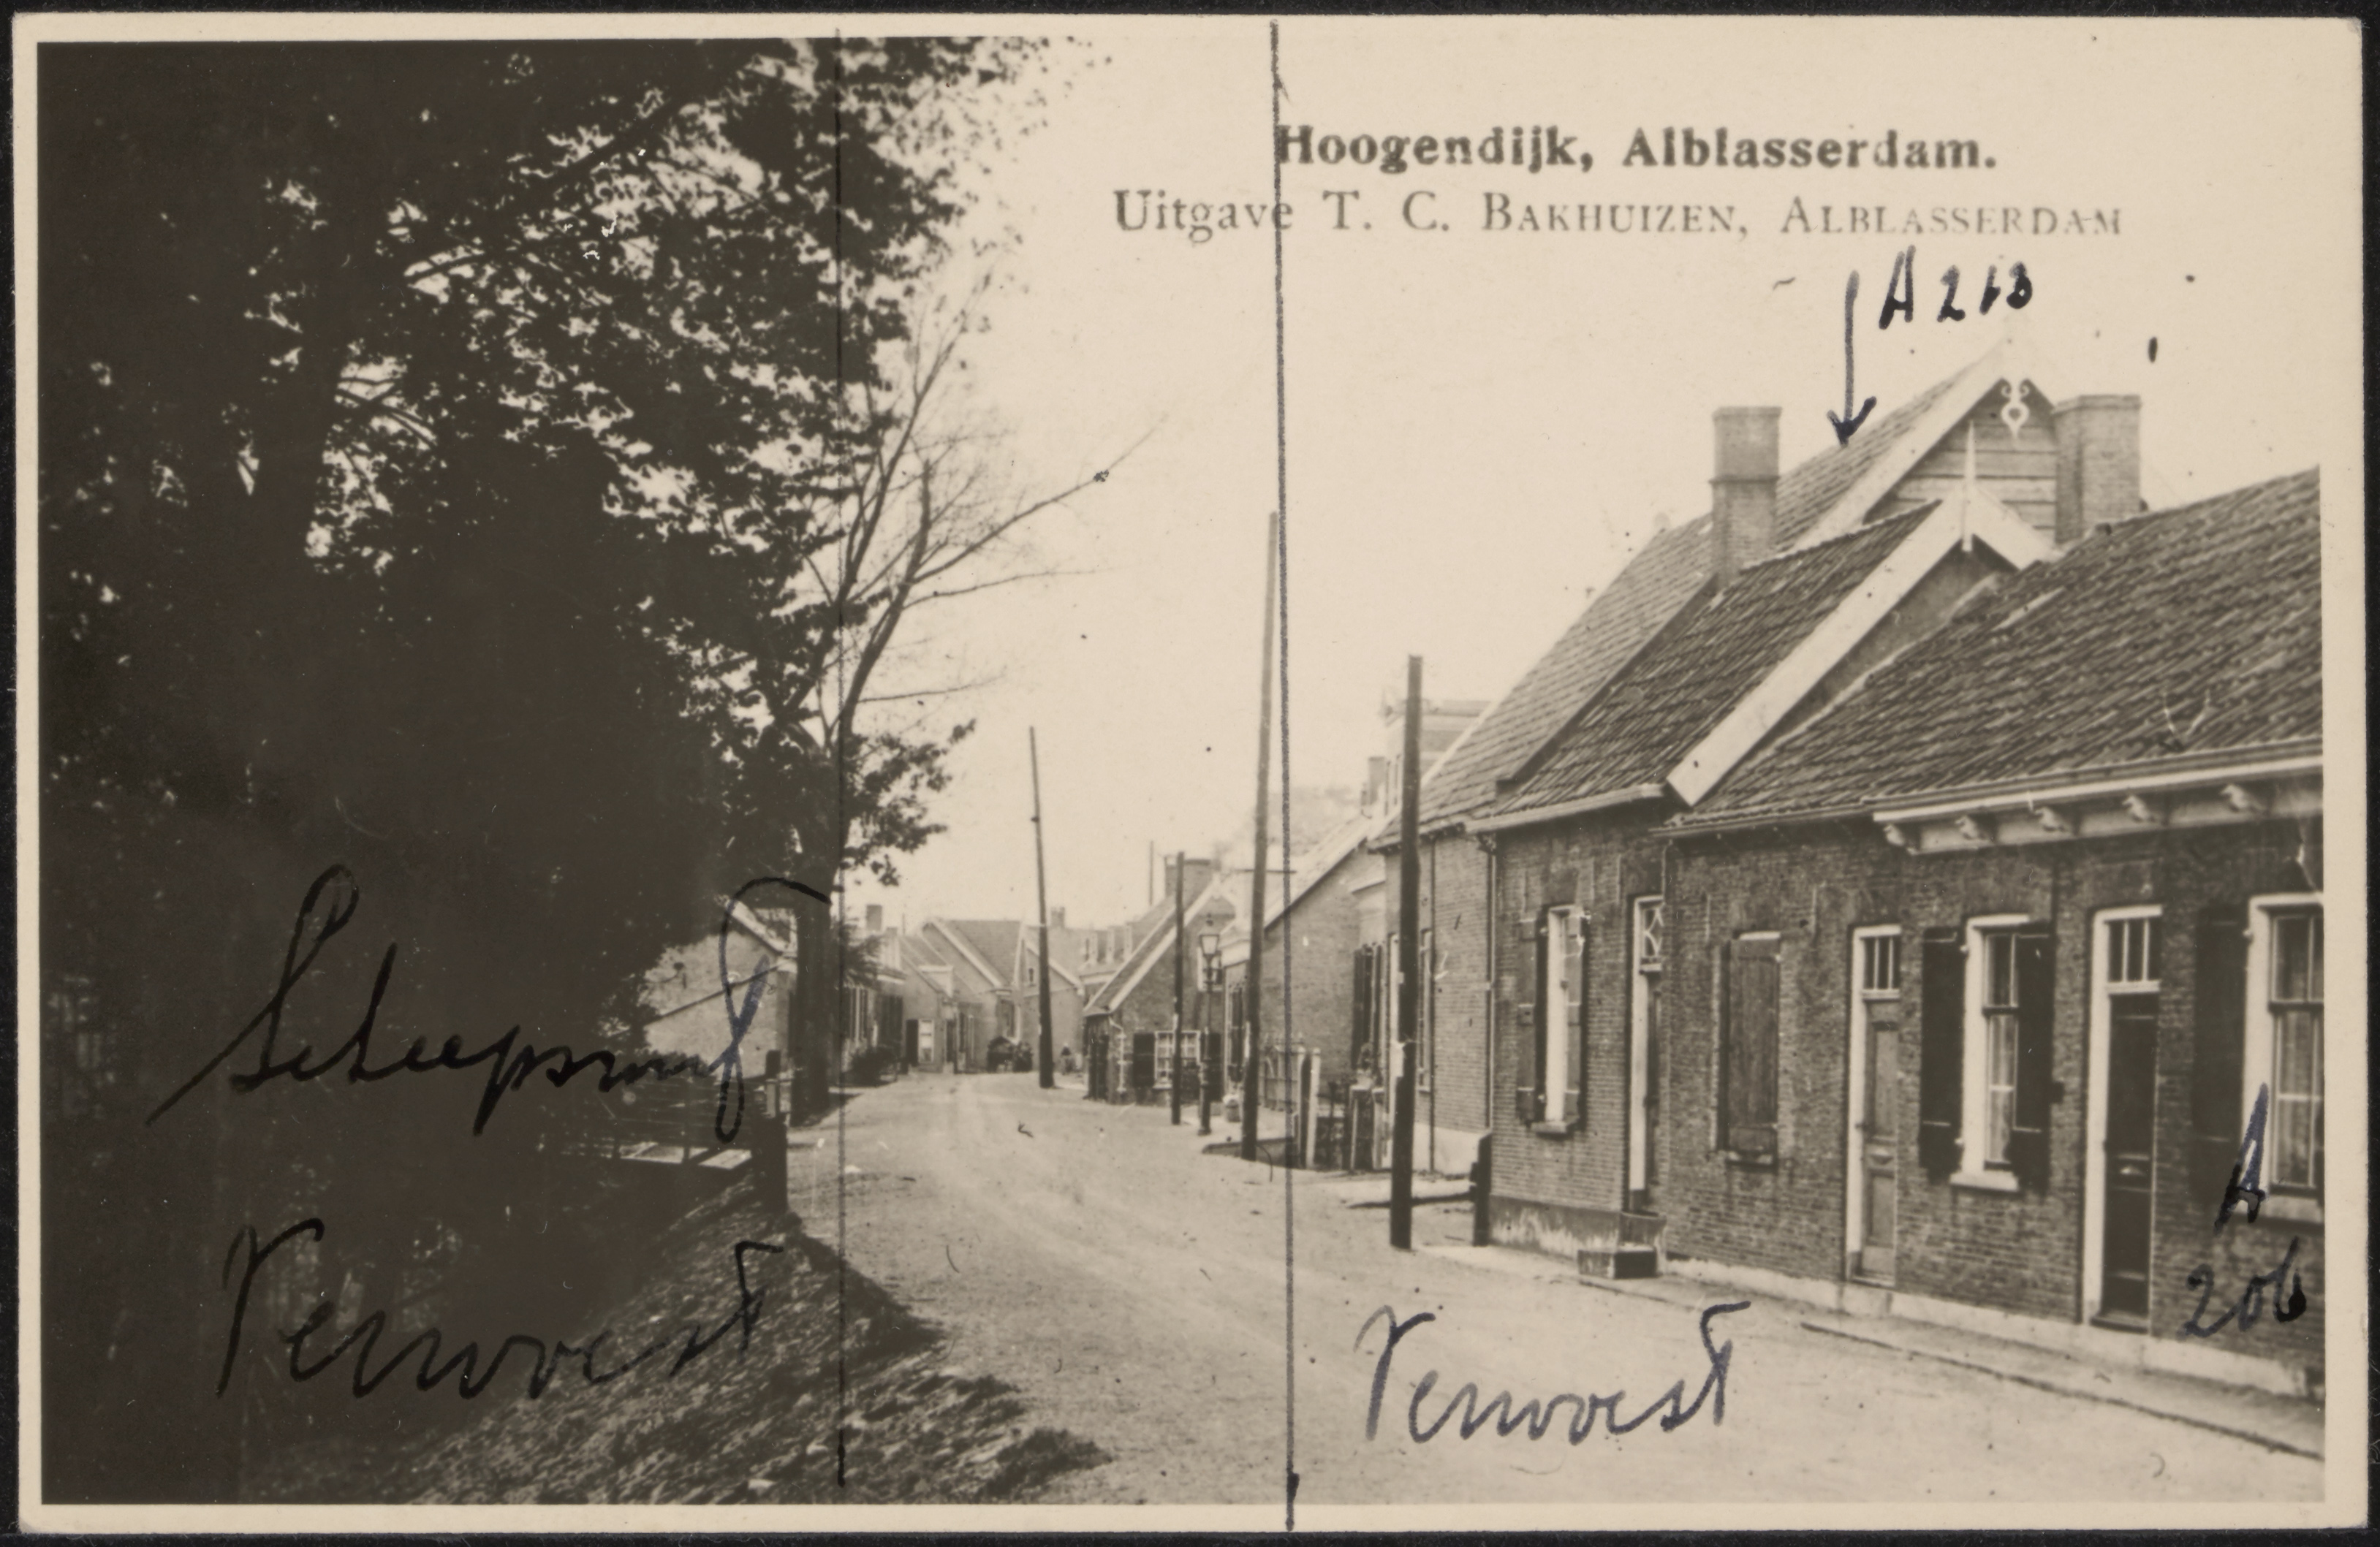 Hoogendijk, Alblasserdam.
Uitgave T. C. BAKHUIZEN, ALBLASSERDAM
A 213
Scheepswerf
Verwoest
Verwoest
A
206